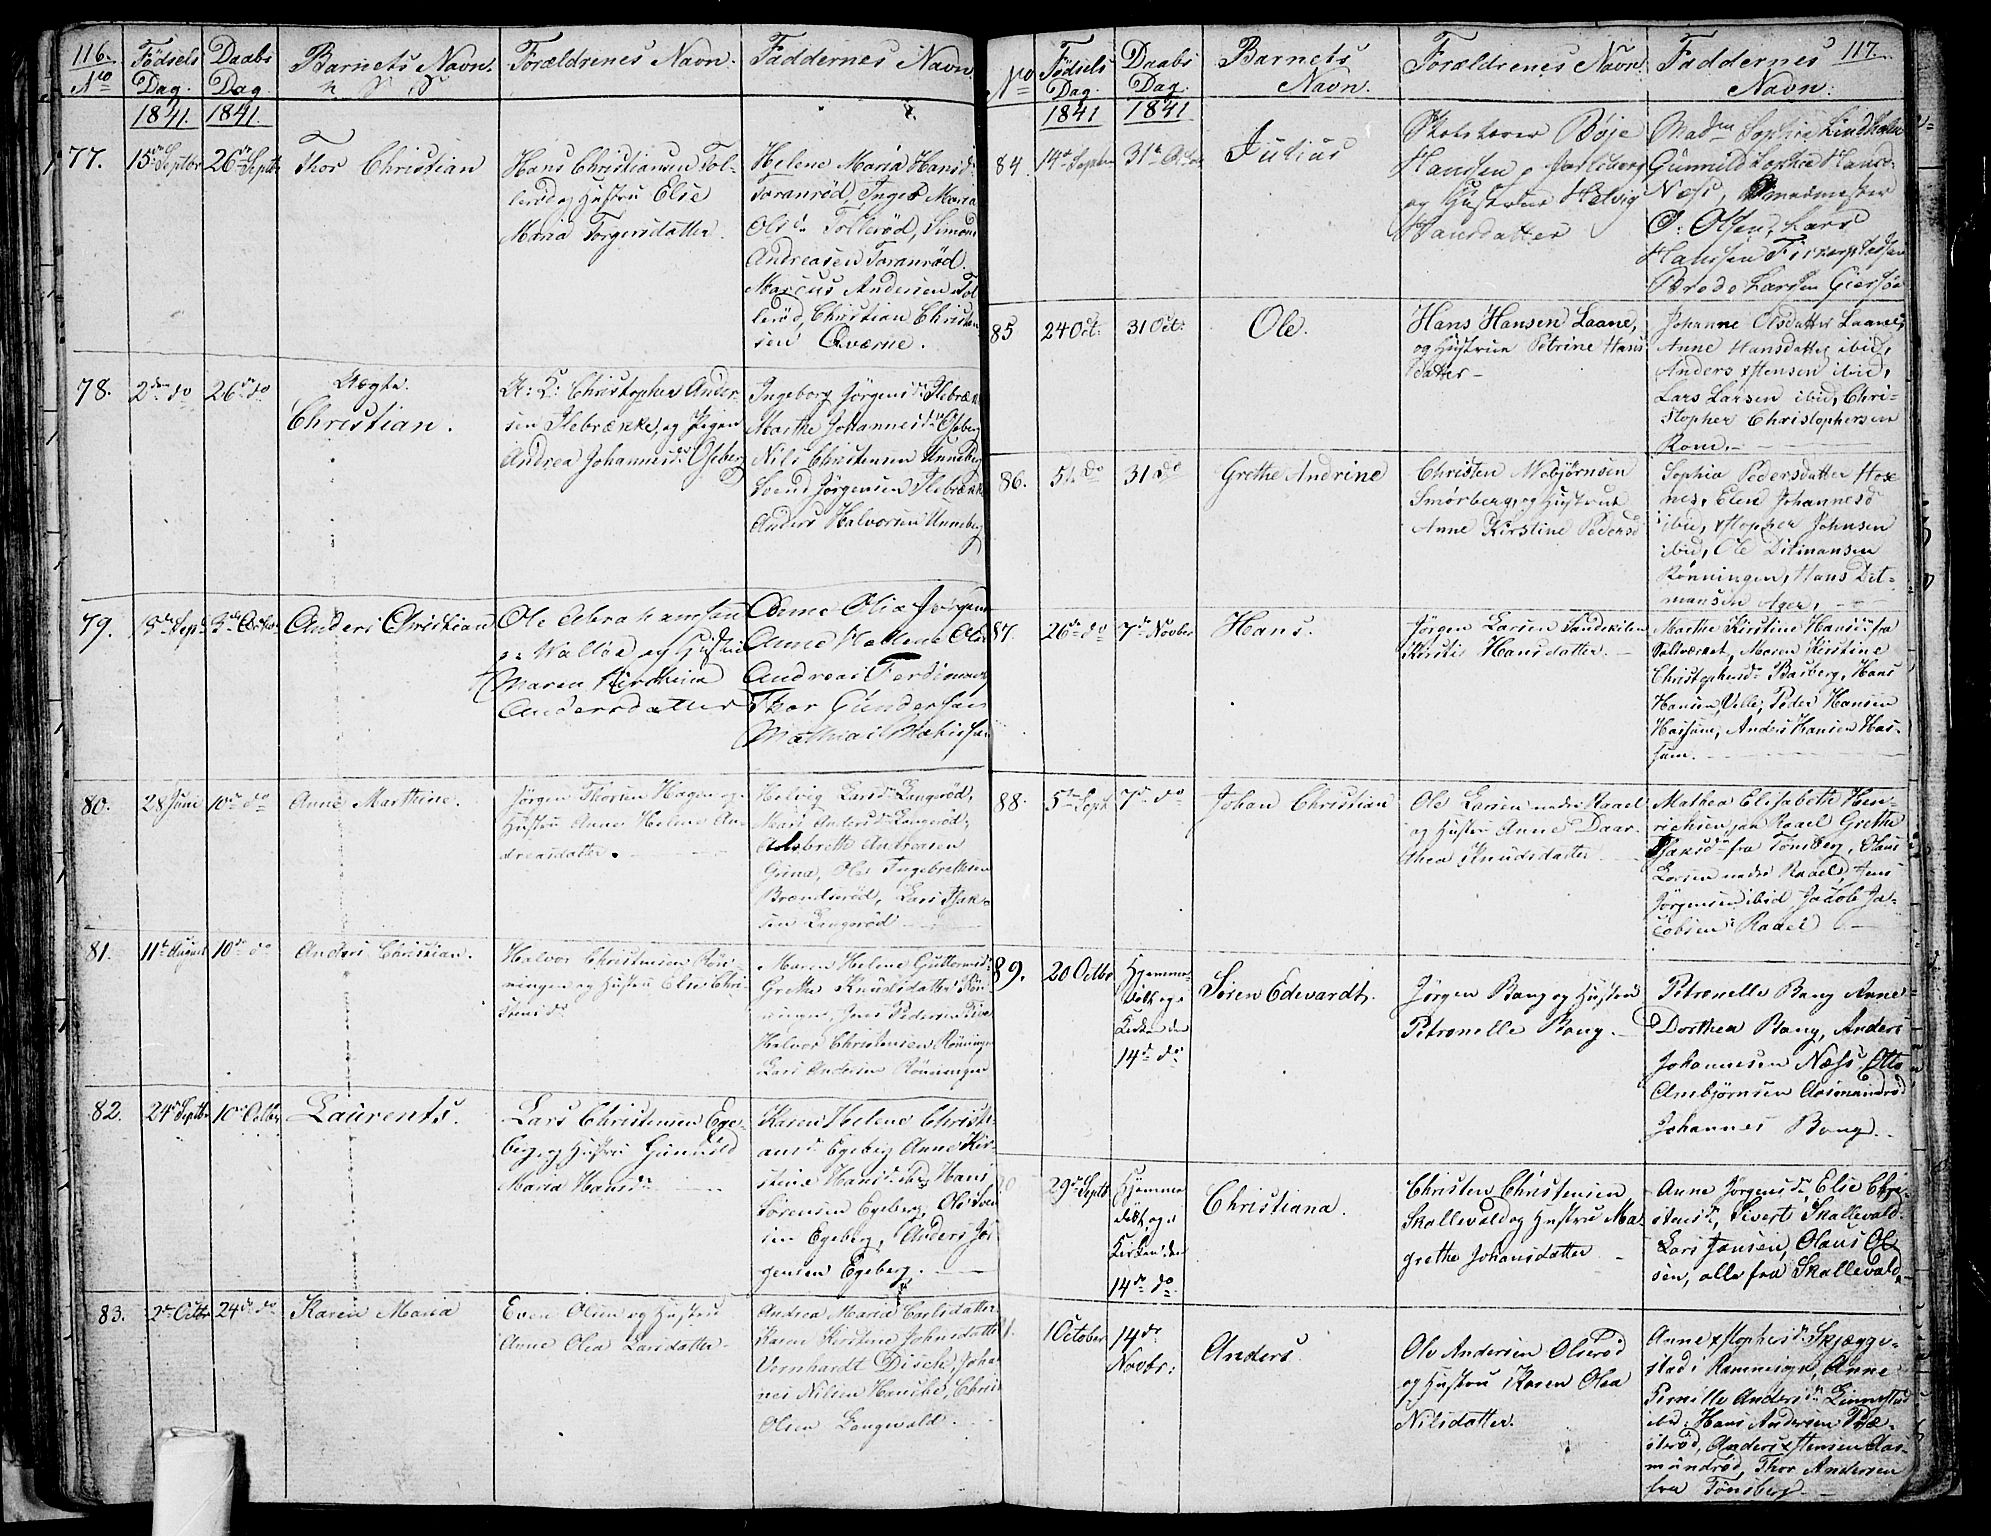 116.
No
Fødsels
Dag.
Daabs
Dag
Barnets Navn.
Forældrenes Navn.
Faddernes Navn
1841.
1841.
77.
15de Septbr
26de Septbr
Thor Christian
Hans Christiansen Tol-
lerød og Hustru Else
Maria Torgersdatter.
Helene Maria Hansd.
Toranrød, Inger Maria
Olsdr Tollerød, Simon
Andreasen Toranrød.
Marcus Andersen Tol-
lerød, Christian Christen
sen Qværne.
78.
2den do
26de do
Uægte.
Christian.
U: K: Christopher Ander-
sen Ilebrække, og Pigen
Andrea Johannesdr Oseberg
Ingeborg Jørgensdr Ilebrække
Marthe Johannesdr Oseberg
Nils Christensen Unneberg
Svend Jørgensen Ilebrække
Anders Halvorsen Unneberg
79.
Anders Christian
Ole Abrahamsen
Valløe og Hustru
Maren Kirstina
Andersdatter
Anne Olia Jørgens
Anne Helene Ols
Andreas Ferdinand
Thor Gundersen
Mathias Mathisen
80.
28 Juni
10de do
Anne Marthine.
Jørgen Thorsen Hagen og
Hustru Anne Helene An-
dreasdatter.
Helvig Larsdr Langerød,
Mari Andersdr Langerød,
Andreasen
Grina, Ole Ingebretsen
Brændserød, Lars Isak-
sen Langerød
81.
11te August
10de do
Anders Christian.
Halvor Christensen Røn-
ningen og Hustru Elise Chri-
stensdr
Maren Helene Guttormsdr
Grethe Knudsdatter Røn-
ningen, Jens Pedersen
Halvor Christensen Rønningen
Lars Andersen Rønningen
82.
24de Septbr
10de Octbr
Laurents.
Lars Christensen Ege-
berg og Hustru Gunnild
Maria Hansdr
Karen Helene Christi-
ansdr Egeberg Anne Kir-
stine Hansdr ibd Hans
Sørensen Egeberg, Ole Sven
sen Egeberg, Anders Jør
gensen Egeberg.
83.
2de Octbr
24de do
Karen Maria
Even Olsen og Hustru
Anne Olea Larsdatter
Andrea Maria Carlsdatter
Karen Kirstine Johnsdatter
Vernhardt Disch, Johan
nes Nilsen Hauche, Chris
Olsen Langvald.
117.
No
Fødsels
Dag.
Daabs
Dag.
Barnets
Navn.
Forældrenes Navn.
Faddernes
Navn.
1841
1841
84.
14de Septbr
31te Octbr
Julius
Skolelærer Bøje
Hansen p Jarlsberg
og Hustrue Helvig
Hansdatter
Madm Sophie Lindholm
Gunnild Sophie Hansd.
Næss,
O. Olsen, Lars
Hansen
Brede Larsen Giersøe
85
24 Oct.
31 Oct:
Ole.
Hans Hansen Laane,
og Hustrue Petrine Hans-
datter
Johanne Olsdatter Laane,
Anne Hansdatter ibid,
Anders Xstensen ibid,
Lars Larsen ibid, Chri-
stopher Christophersen
Rom.
86.
5te do
31 do
Grethe Andrine
Christen Mobjørnsen
Smørberg, og Hustrue
Anne Kirstine Pedersd
Sophia Pedersdatter Hox
nes, Elen Johannesd
ibid, Xstopher Johnsen
ibid, Ole Ditmansen
Rønningen, Hans Dit-
mansen Ager,
87.
26de do
7de Novbr
Hans.
Jørgen Larsen Sandekilen
Kirsti Hansdatter.
Marthe Kirstine Hansdr fra
Valværket, Maren Kirstine
Christophersdr Basberg, Hans
Hansen Velle, Peder Hansen
Hassum, Anders Hansen Has-
sum.
88.
5te Sept
7de do
Johan Christian
Ole Larsen nedre Raael
og Hustru Anne Daar-
thea Knudsdatter
Mathea Elisabeth Hen-
richsen paa Raael Grethe
Isaksdr fra Tønsberg, Claus
Larsen nedre Raael, Jens
Jørgensen ibid, Jacob Ja-
cobsen Raael
89.
20 Octbr
Hjemme-
døbt, og i
Kirken den
14de do
Søren Edevardt.
Jørgen Bang og Hustru
Petronelle Bang.
Petronelle Bang Anne
Dorthea Bang, Anders
Johannesen Næss, Otto
Ambjørnsen Aasmundrød
Johannes Bang.
29de Septb
Hjemme
døbt, og i
Kirken den
14de do
Christiana.
Christen Christensen
Skallevald og Hustru Ma-
grethe Johansdatter
Anne Jørgensdr, Elise Chri-
stensdr, Sivert Skallevald.
Lars Jansen, Olaus Ol
sen, alle fra Skallevald,
1 October
14de
Novbr:
Anders.
Ole Andersen Olserød
og Hustru Karen Olea
Nilsdatter.
Anne Xstophersdr Skjægge-
stad i Ramnesogn, Anne
Pernille Andersdr Linnestad
ibd: Hans Andersen Præ-
sterød, Anders Xstensen Aas-
mundrød, Thor Andersen
fra Tønsberg.